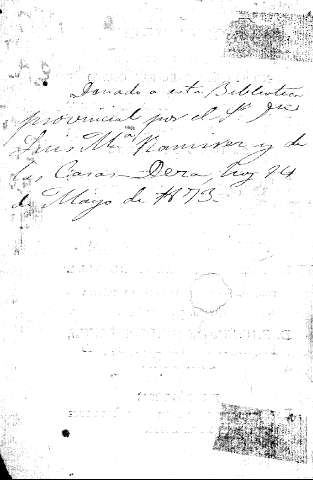 Donado a esta Biblioteca
provincial por el Sr. Dn.
Luis Mª Ramirez y de
las Casas Deza, hoy 24
de Mayo de 1873.